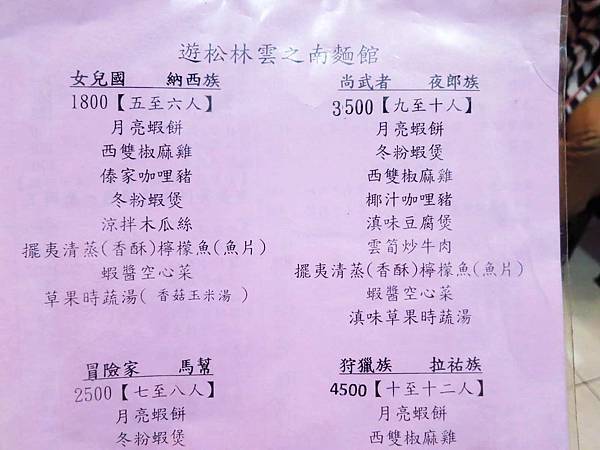 遊松林雲之南麵館
女兒國 納西族
1800【五至六人】
月亮蝦餅
西雙椒麻雞
傣家咖哩豬
冬粉蝦煲
涼拌木瓜絲
擺夷清蒸(香酥)檸檬魚(魚片)
蝦醬空心菜
草果時蔬湯( 香菇玉米湯 )
尚武者 夜郎族
3500【九至十人】
月亮蝦餅
冬粉蝦煲
西雙椒麻雞
椰汁咖哩豬
滇味豆腐煲
雲筍炒牛肉
擺夷清蒸(香酥)檸檬魚(魚片)
蝦醬空心菜
滇味草果時蔬湯
冒險家 馬幫
2500【七至八人】
月亮蝦餅
冬粉蝦煲
狩獵族 拉祜族
4500【十至十二人】
月亮蝦餅
西雙椒麻雞